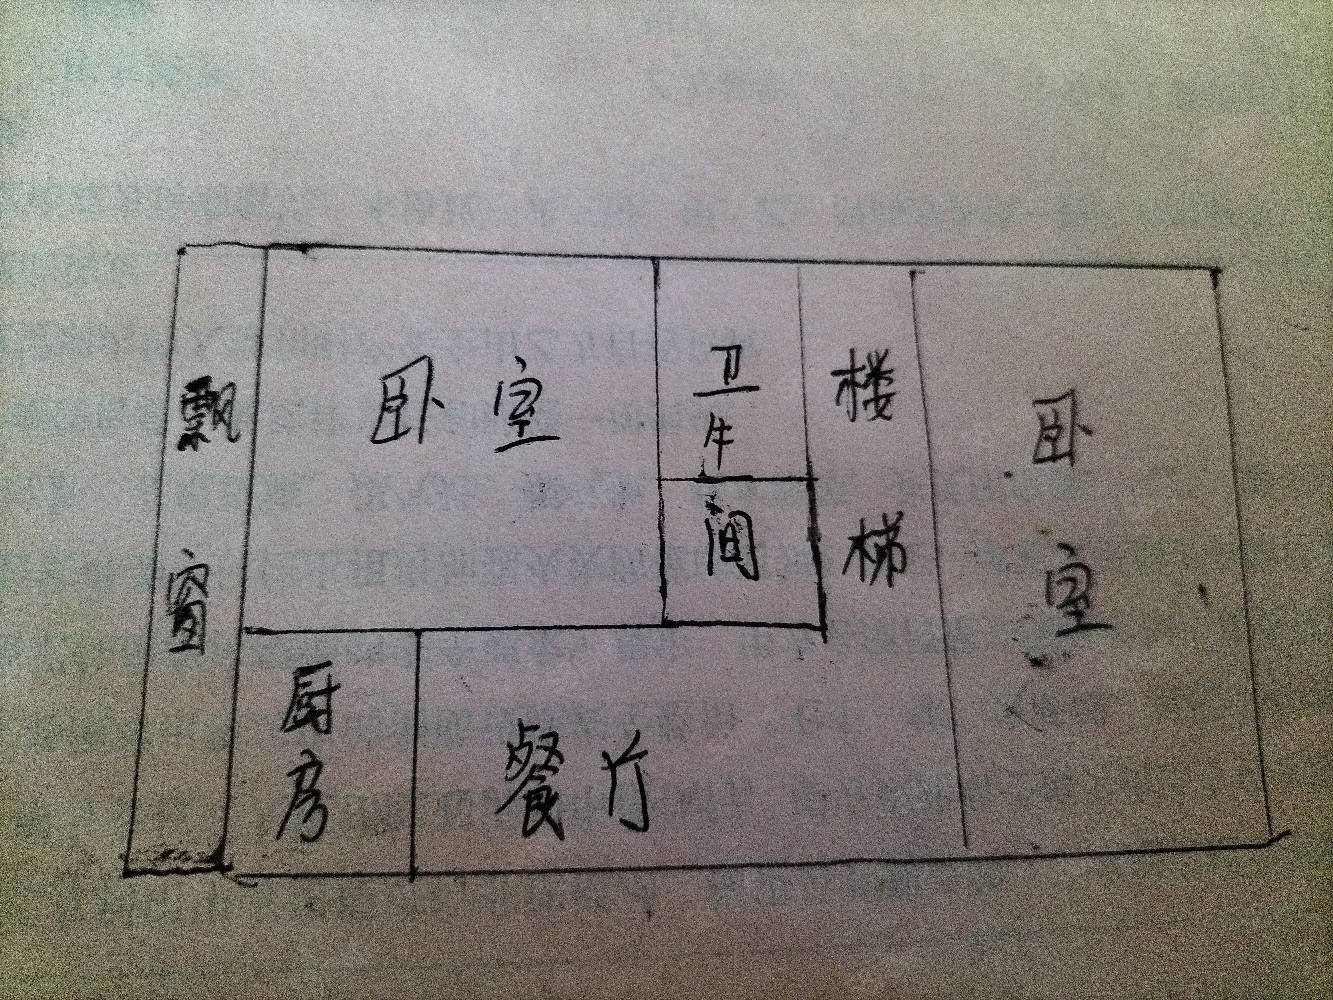 飘窗
卧室
卫生间
楼梯
卧室
厨房
餐厅